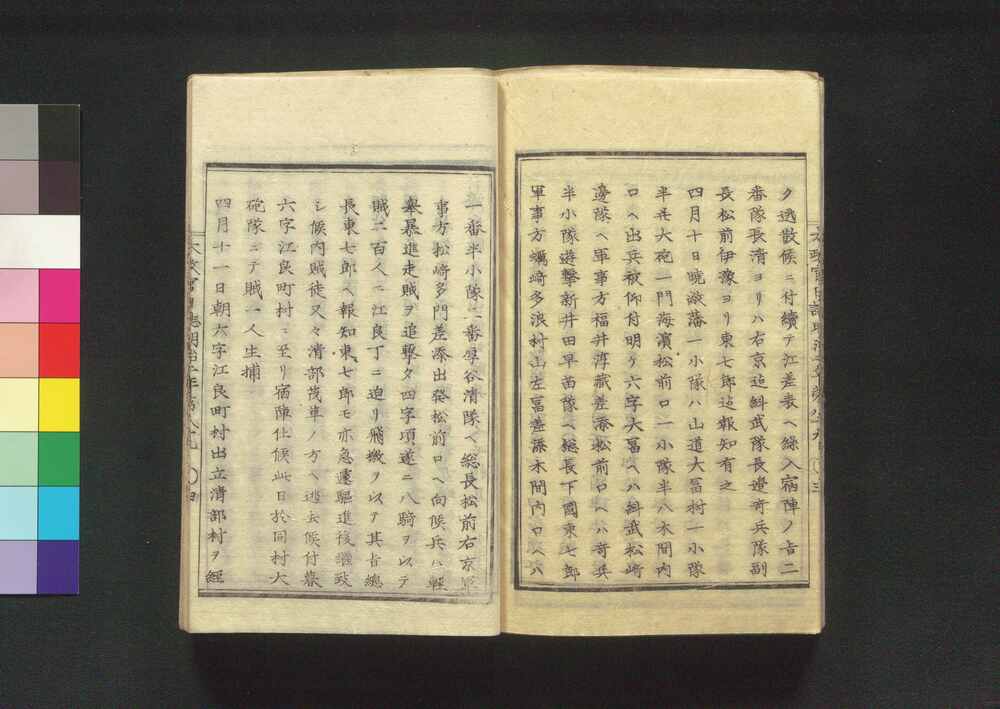 ク逃散候ニ付續テ江差表ヘ繰入宿陣ノ旨二
番隊長清ヨリハ右京迠糾武隊長邊奇兵隊副
長松前伊豫ヨリ東七郎迠報知有之
四月十日曉激藩一小隊ハ山道大冨村一小隊
半并大砲一門海濱松前口一小隊半ハ木間内
口ヘ出兵被仰付明ケ六字大冨ヘハ糾武松崎
邊隊ヘ軍事方福井淳藏差添松前口ヘハ奇兵
半小隊遊撃新井田早苗隊ヘ総長下國東七郎
軍事方蠣崎多浪村山左冨差添木間内口ヘハ
一番半小隊二番厚谷清隊ヘ総長松前右京軍
事方松崎多門差添出發松前口ヘ向候兵ハ輕
舉暴進走賊ヲ追撃夕四字項遂ニ八騎ヲ以テ
賊二百人ニ江良丁ニ迫リ飛檄ヲ以テ其旨總
長東七郎ヘ報知東七郎モ亦急遽驅進後繼致
シ候内賊徒又々清部茂草ノ方ヘ逃去候付暮
六字江良町村ニ至リ宿陣仕候此日於同村大
砲隊ニテ賊一人生捕
四月十一日朝六字江良町村出立清部村ヲ經